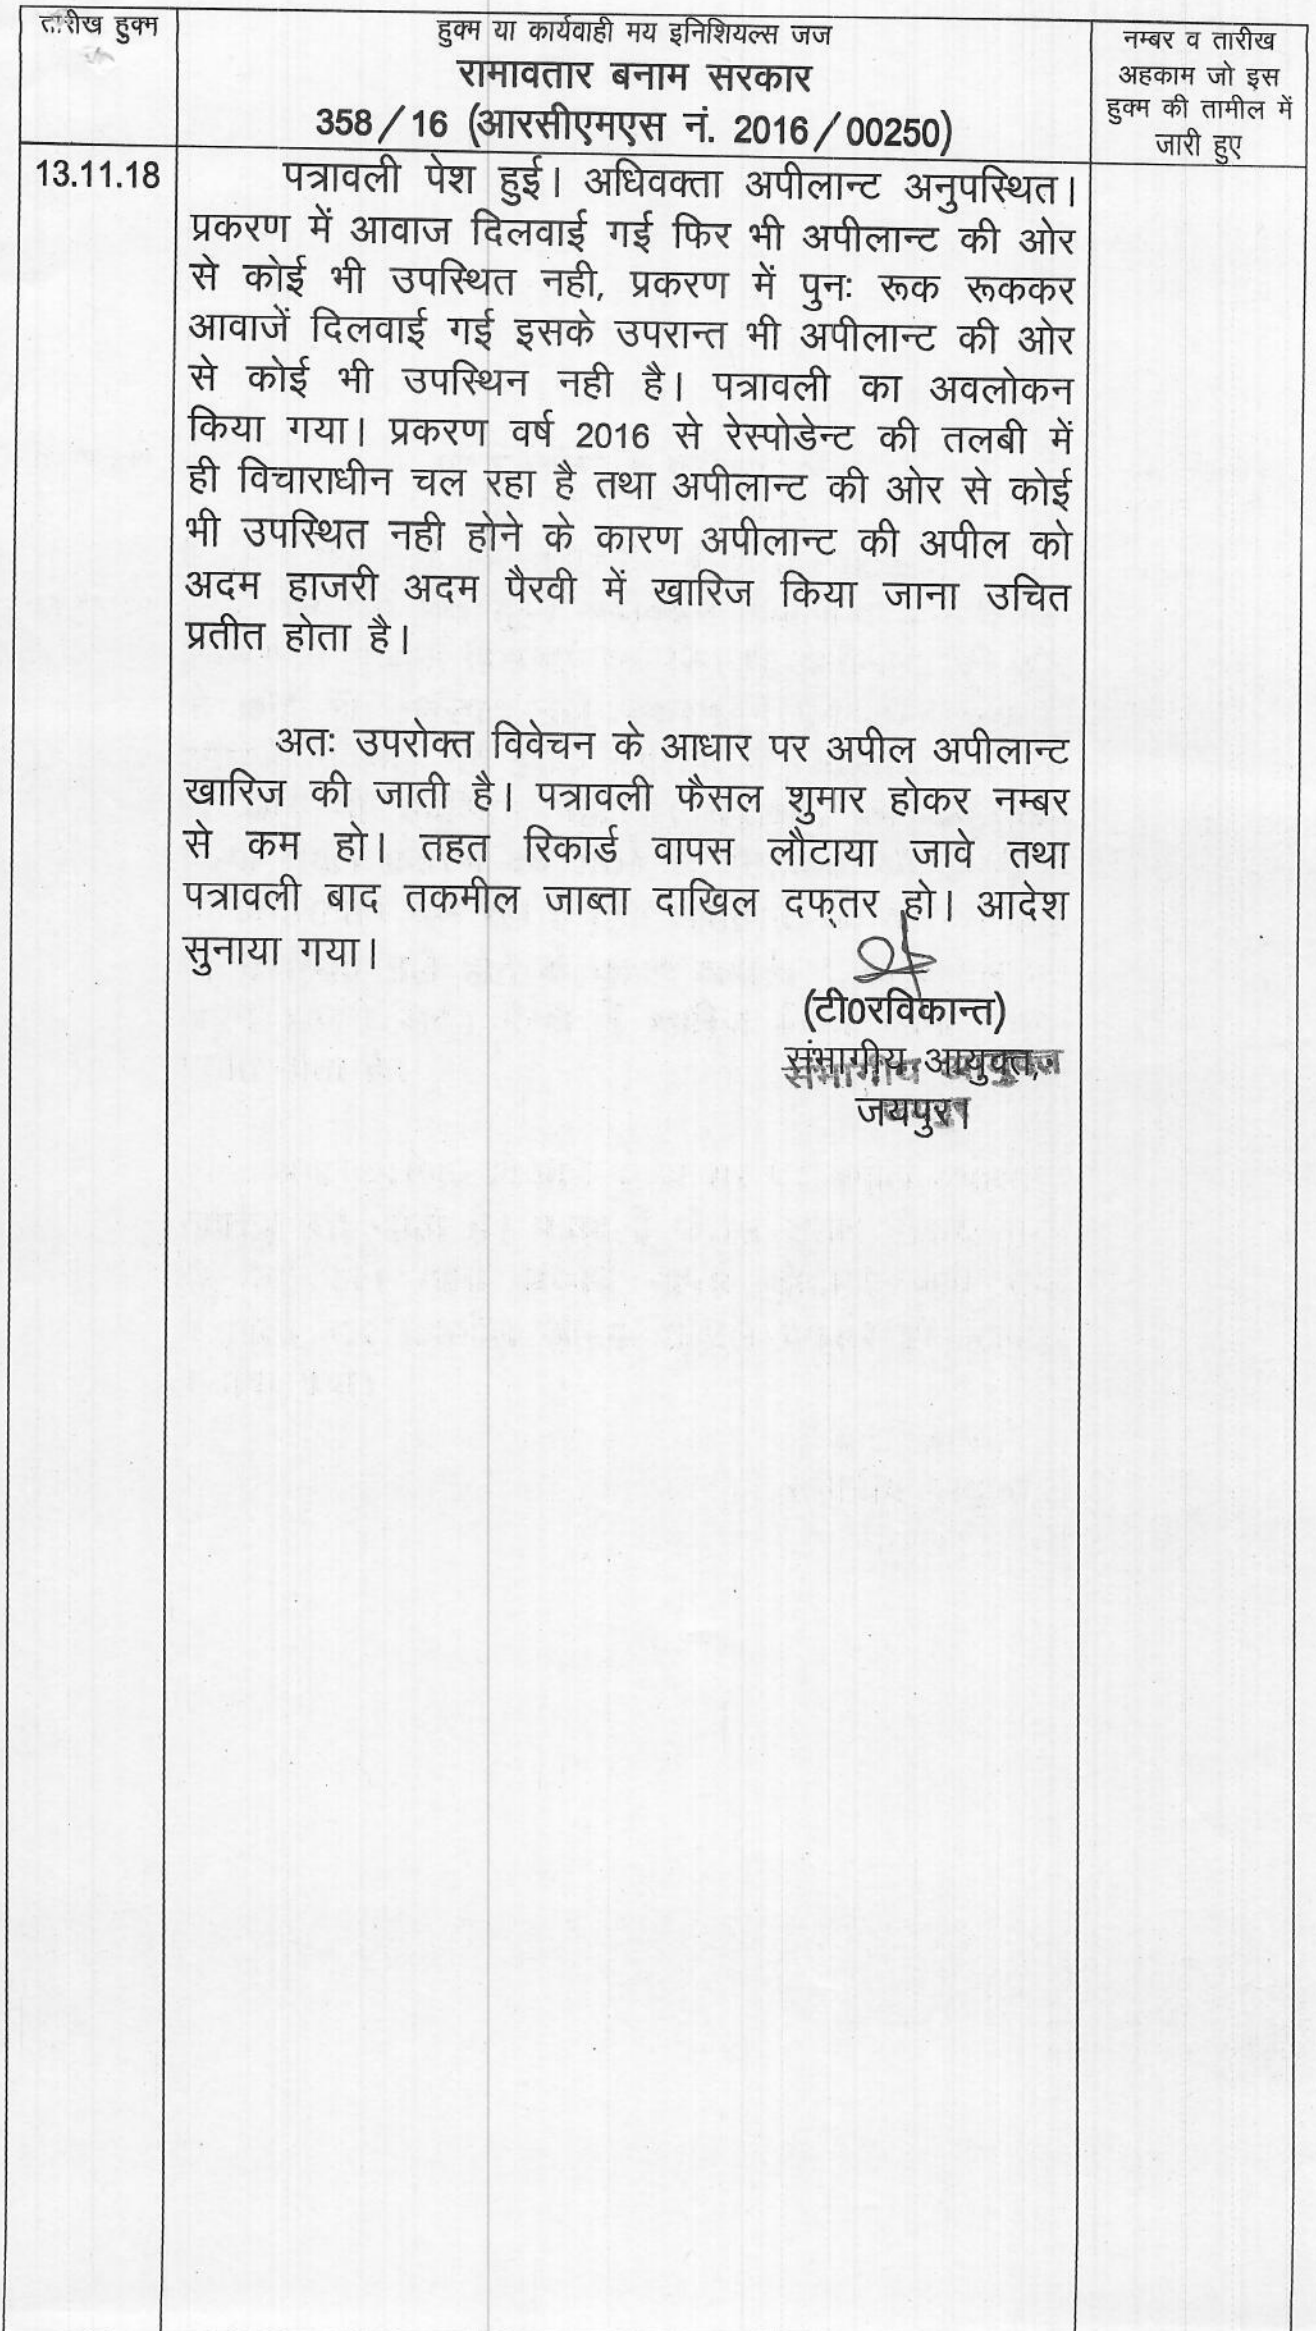 तारीख हुक्म
हुक्म या कार्यवाही मय इनिशियल्स जज
रामावतार बनाम सरकार
358/16 (आरसीएमएस नं. 2016/00250)
नम्बर व तारीख
अहकाम जो इस
हुक्म की तामील में
जारी हुए
13.11.18
पत्रावली पेश हुई। अधिवक्ता अपीलान्ट अनुपस्थित।
प्रकरण में आवाज दिलवाई गई फिर भी अपीलान्ट की ओर
से कोई भी उपस्थित नही, प्रकरण में पुनः रूक रूककर
आवाजें दिलवाई गई इसके उपरान्त भी अपीलान्ट की ओर
से कोई भी उपस्थिन नही है। पत्रावली का अवलोकन
किया गया। प्रकरण वर्ष 2016 से रेस्पोडेन्ट की तलबी में
ही विचाराधीन चल रहा है तथा अपीलान्ट की ओर से कोई
भी उपस्थित नही होने के कारण अपीलान्ट की अपील को
अदम हाजरी अदम पैरवी में खारिज किया जाना उचित
प्रतीत होता है।
अतः उपरोक्त विवेचन के आधार पर अपील अपीलान्ट
खारिज की जाती है। पत्रावली फैसल शुमार होकर नम्बर
से कम हो। तहत रिकार्ड वापस लौटाया जावे तथा
पत्रावली बाद तकमील जाब्ता दाखिल दफ्‌तर हो। आदेश
सुनाया गया।
(टी0रविकान्त)
संभागीय आयुक्त,
जयपुर।